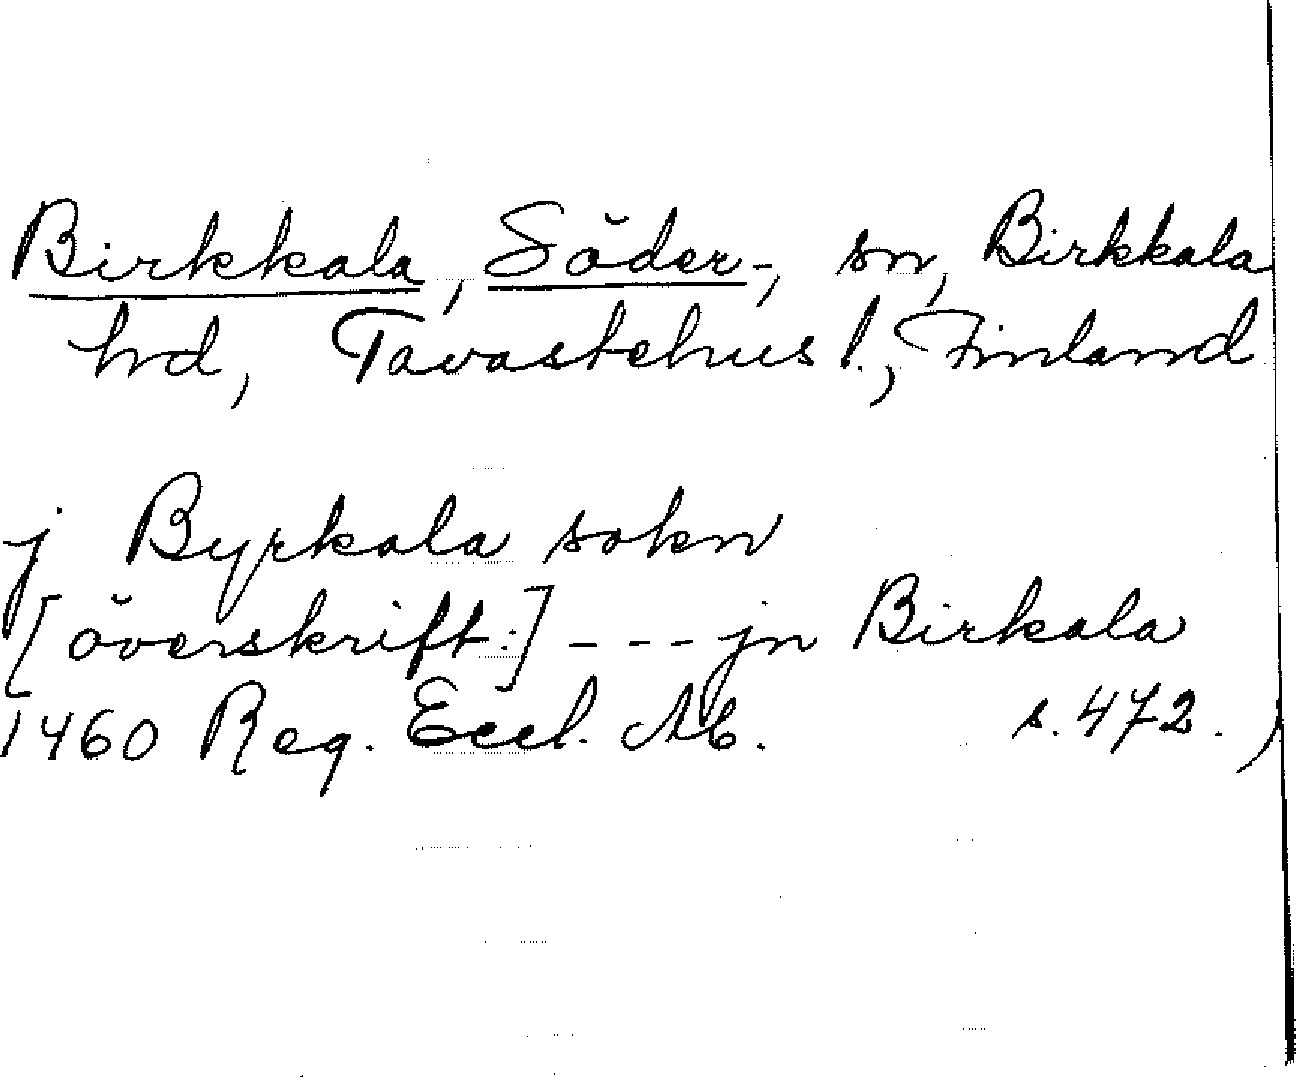 Birkkala, Söder-, sn, Birkkala
hd, Tavastehus l., Finland
j Byrkala sokn
[överskrift:] --- jn Birkala
1460 Reg. Eccl. Ab. s. 472.)